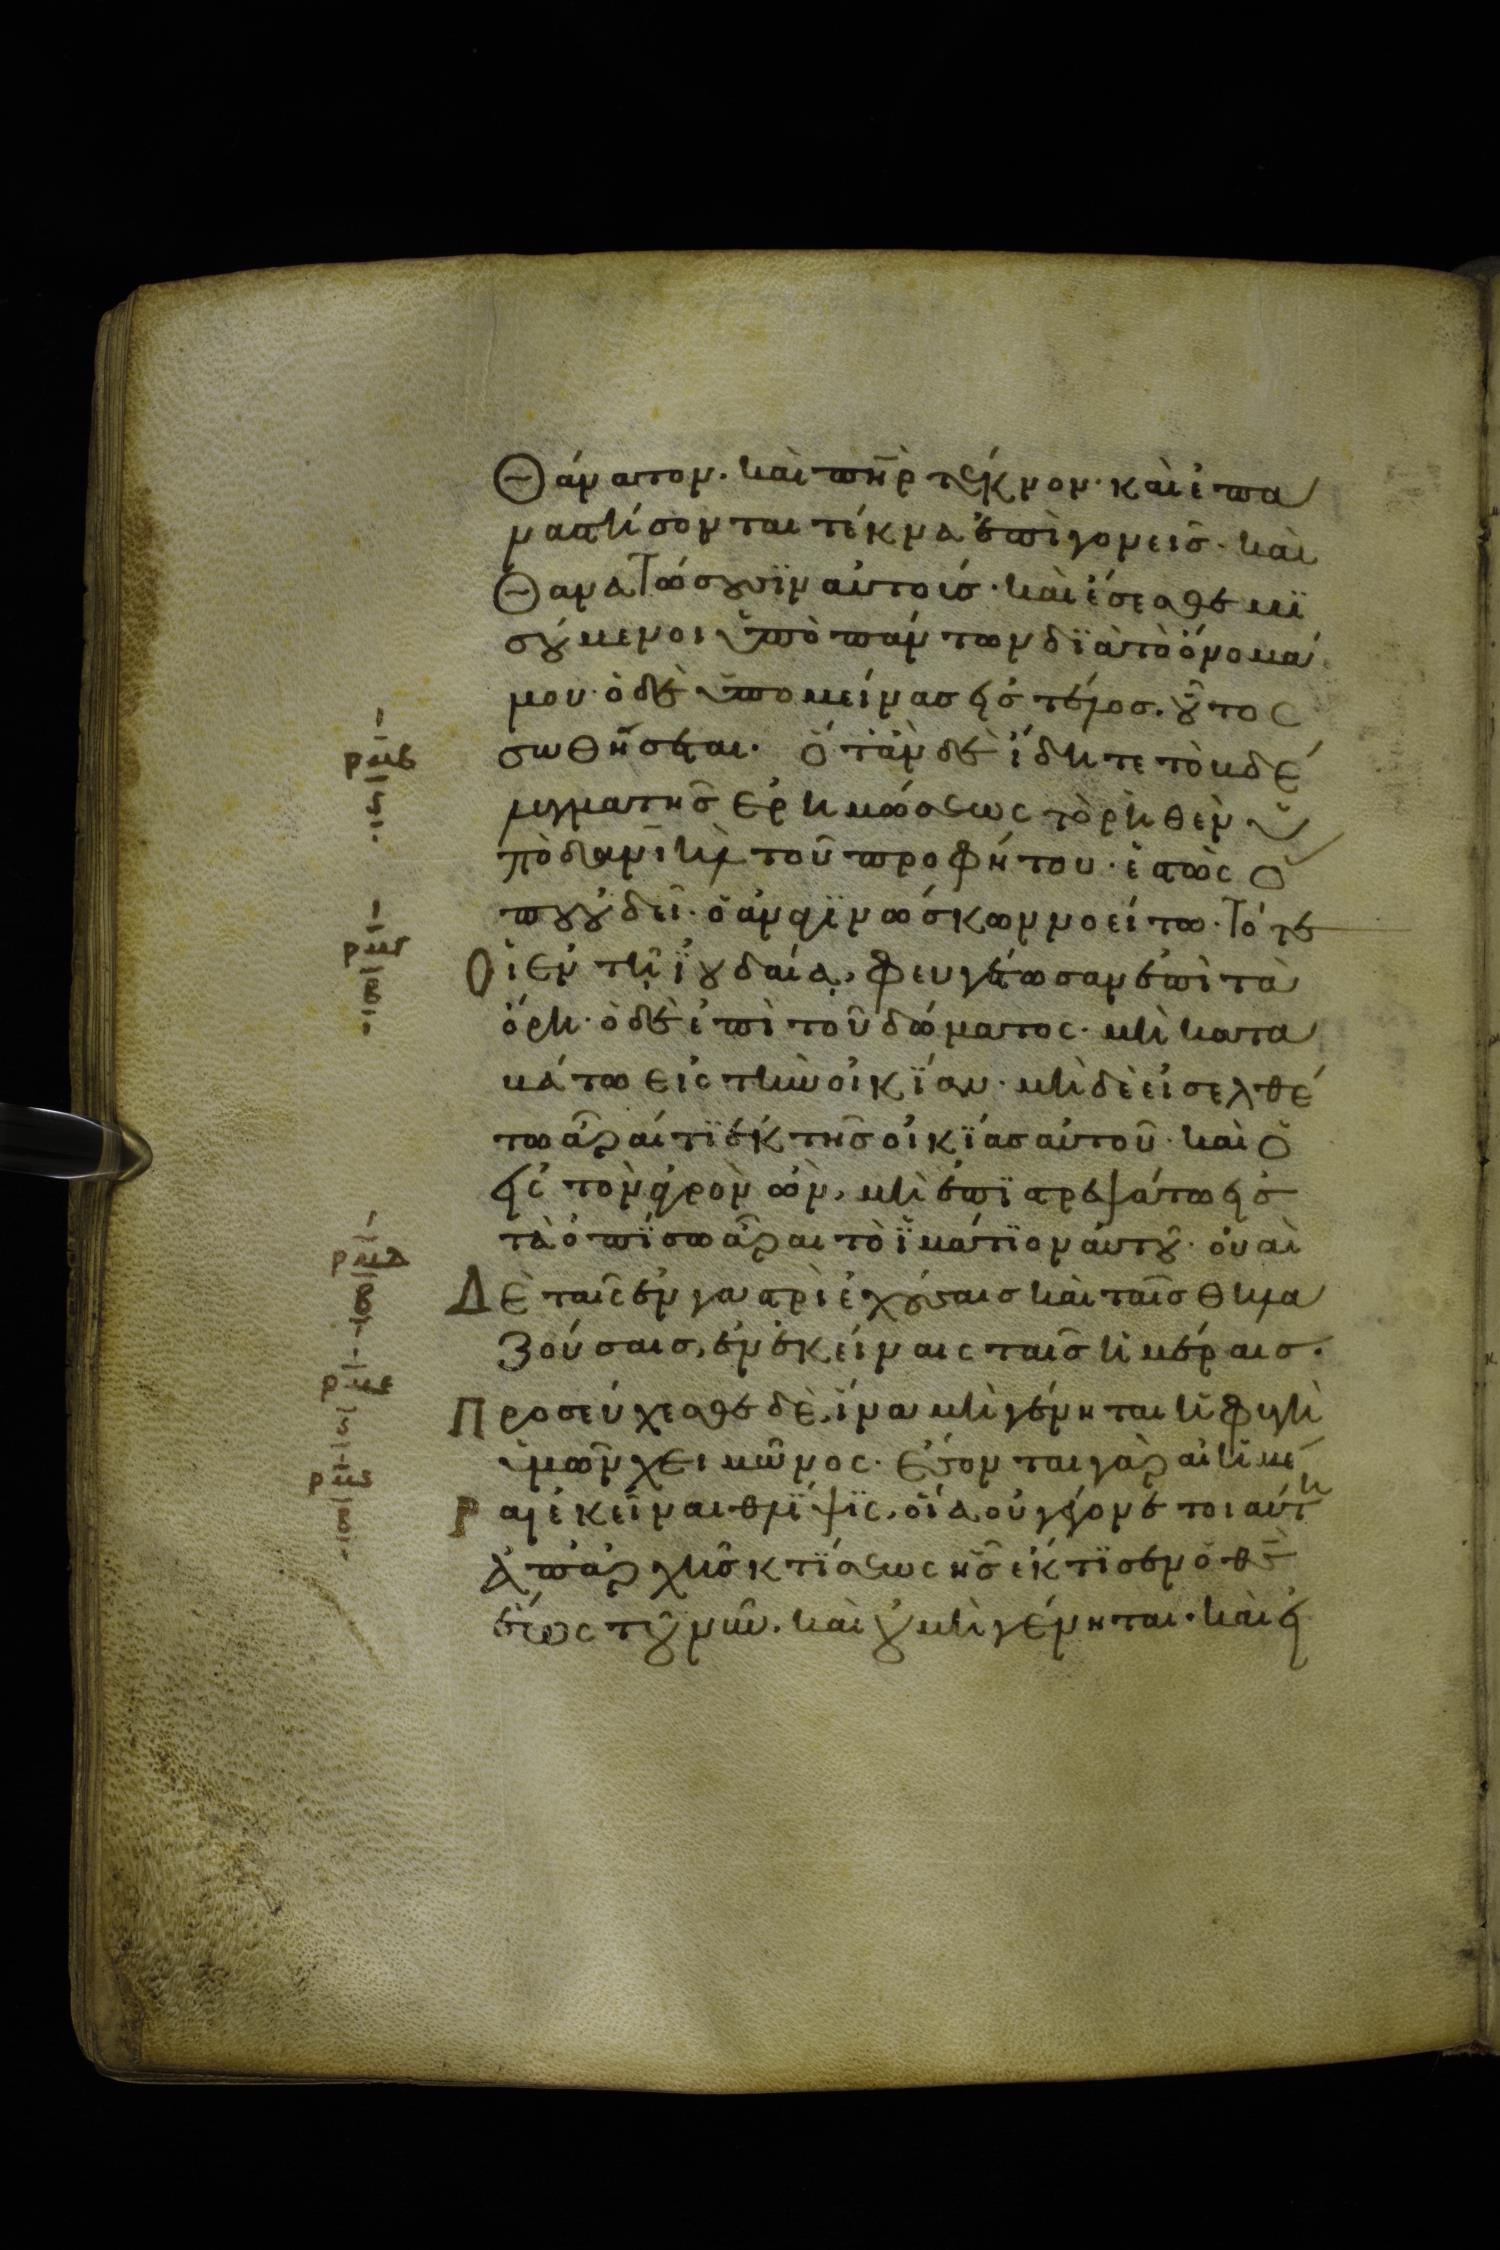 θάνατον· καὶ πη̅ρ τέκνον· καὶ ἐπα
ναστήσονται τέκνα ἐπὶ γονεῖσ· καὶ
θανατώσουσϊν αὐτοὺσ· καὶ ἔσεσθε μϊ
σούμενοι ὑπὸ πάντων δϊὰ τὸ ὄνομά
μου· ὁ δὲ ὑπομείνασ εἰσ τέλοσ. οὗτος
σωθήσεται. ὅταν δὲ ἴδητε τὸ βδέ
λυγμα τῆσ ἐρημώσεως τὸ ῥηθὲν ὑ
πὸ δανϊὴλ τοῦ προφήτου· ἑστὼς ὅ
που οὐ δεῖ· ὁ ἀναγϊνώσκων νοείτω· τότε
Οἱ ἐν τῆ ϊουδαία, φευγέτωσαν ἐπὶ τὰ
ὄρη· ὁ δὲ ἐπὶ τοῦ δώματος· μὴ κατα
βάτω εἰς τὴν οἰκϊαν· μὴ δὲ εἰσελθέ
τω ἆραί τϊ ἐκ τῆσ οἰκϊασ αὐτοῦ· καὶ ὁ
εἰς τὸν ἀγρὸν ὢν, μὴ ἐπϊστρεψάτω εἰσ
τὰ ὀπϊσω ἆραι τὸ ϊμάτϊον αὐτοῦ· οὐαὶ
Δὲ ταῖς ἐν γαστρὶ ἐχούσαισ καὶ ταῖσ θηλα
ζούσαισ, ἐν ἐκείναις ταῖσ ἡμέραισ·
Προσεύχεσθε δὲ, ἵνα μὴ γένηται ἡ φυγὴ
ὑμῶν χειμῶνος· ἔσονται γὰρ αἱ ἡμέ
Ραι ἐκεῖναι θλϊψϊς, οἵα οὐ γέγονε τοιαύτη
ἀπ ἀρχῆσ κτϊσεως ἧσ ἔκτϊσεν ὁ θ̅σ
ἕως τοῦ νῦν. καὶ οὐ μὴ γένηται· καὶ εἰ
ρμβ
ς
ρμγ
β
ρμδ
β
ρμε
ς
ρμς
β